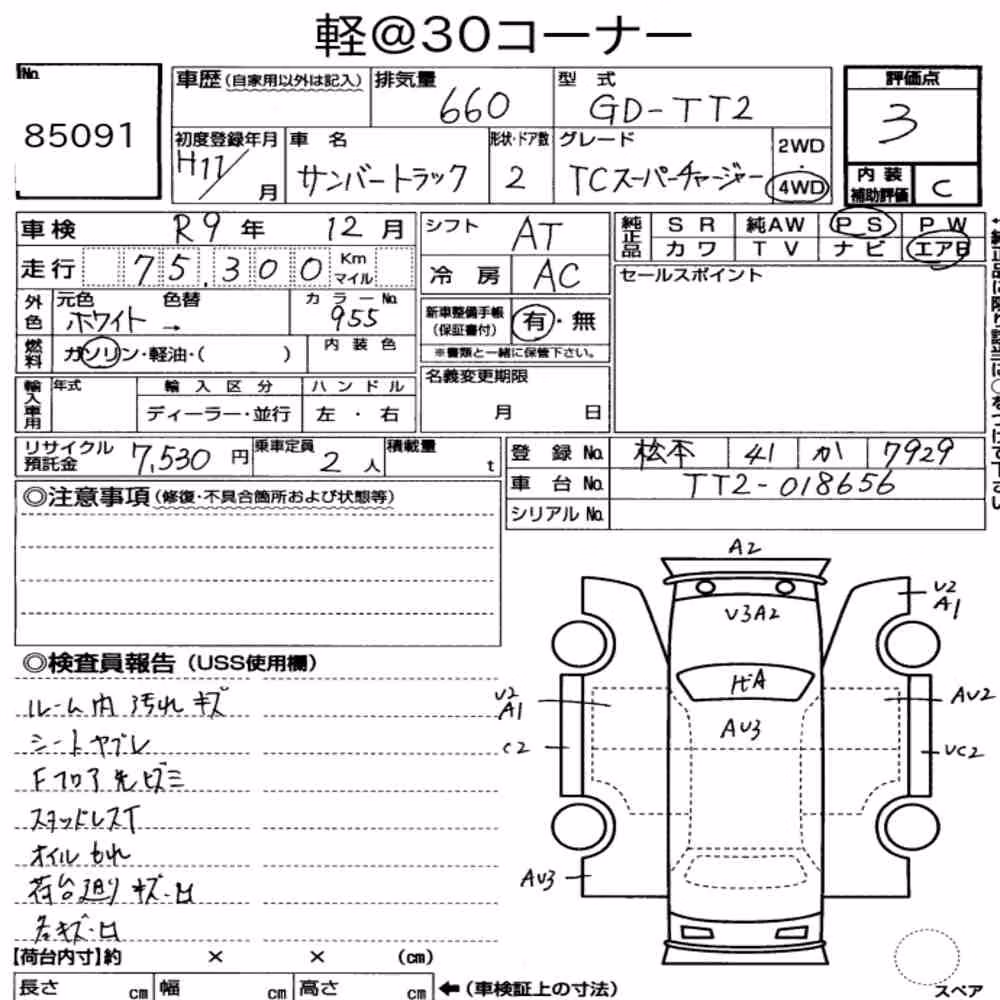 軽@30コーナー
No. 85091
車歴(自家用以外は記入)
排気量 660
型式 GD-TT2
評価点 3
初度登録年月 H17/月
車名 サンバートラック
形状・ドア数 2
グレード TCスーパーチャージャー
2WD・4WD
内装補助評価 C
車検 R9年 12月
シフト AT
純正品 SR 純AW PS PW
カワ TV ナビ エアB
走行 75,300 Km マイル
冷房 AC
セールスポイント
外色 元色 ホワイト → 色替
カラーNo. 955
新車整備手帳(保証書付) 有・無
※書類と一緒に保管下さい。
燃料 ガソリン・軽油・( )
内装色
名義変更期限 月 日
輸入車用 年式 輸入区分 ハンドル
ディーラー・並行 左・右
リサイクル預託金 7,530円
乗車定員 2人
積載量 t
登録No. 松本 41 か 7929
車台No. TT2-018656
シリアルNo.
◎注意事項(修復・不具合箇所および状態等)
◎検査員報告(USS使用欄)
ルーム内 汚れ キズ
シートヤブレ
Fフロア先ハズミ
スタッドレスT
オイルもれ
荷台廻りキズ・凹
各キズ・凹
A2
V3A2
U2
A1
ガA
AU3
U2
A1
C2
AU2
UC2
AU3
スペア
【荷台内寸】約 × × (cm)
長さ cm 幅 cm 高さ cm ←(車検証上の寸法)